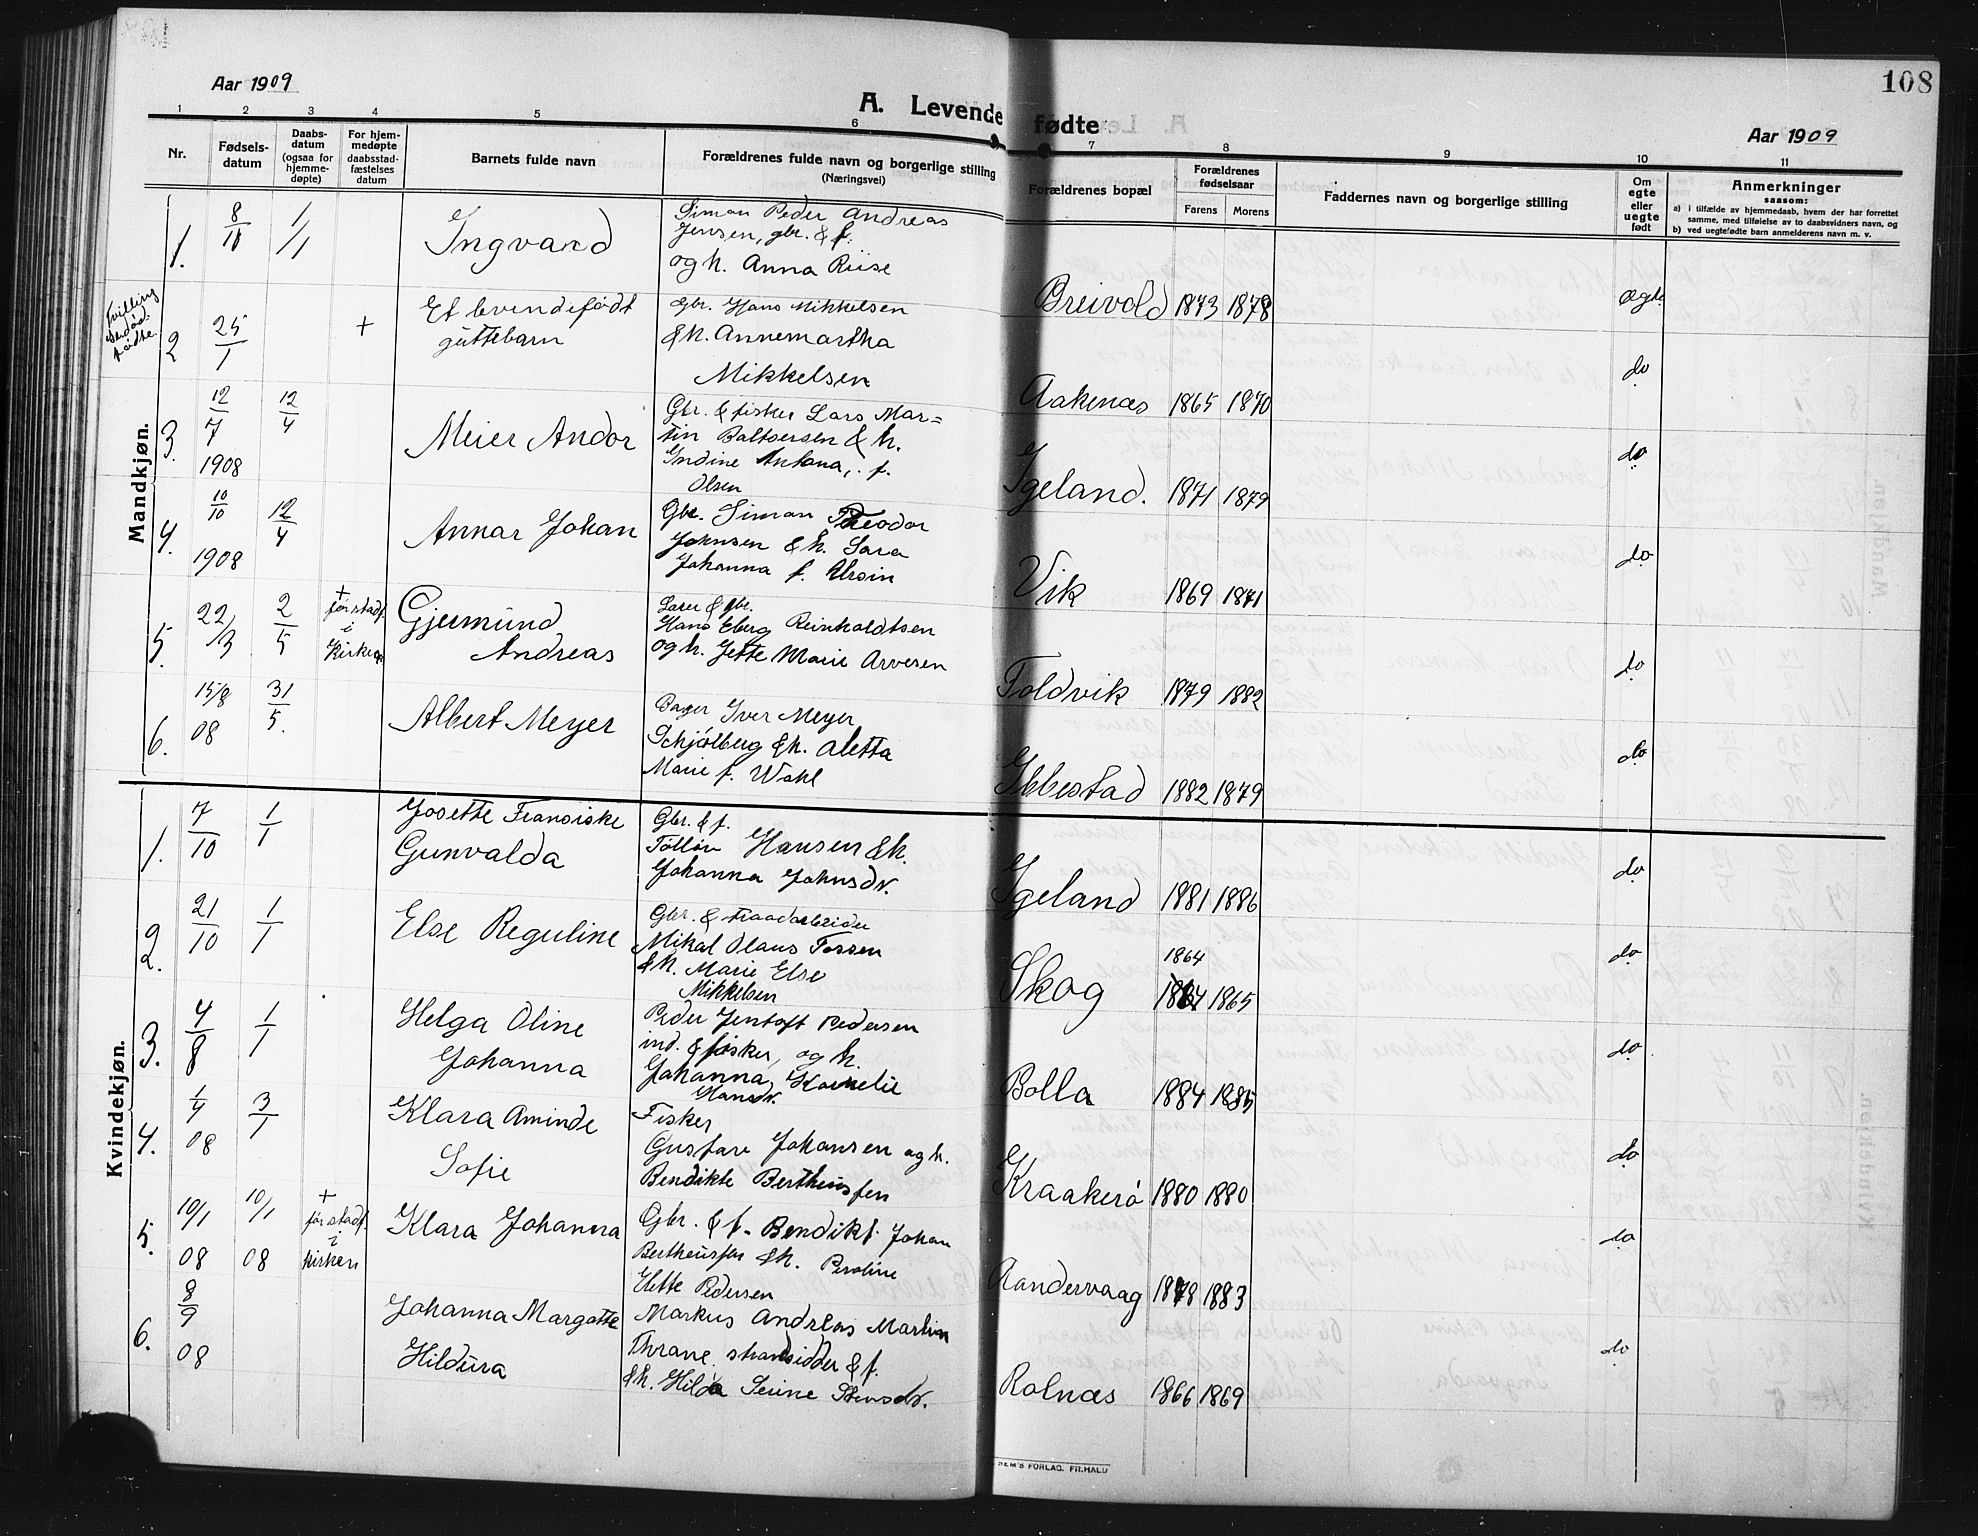 108
Aar 1909
A. Levende fødte
Aar 1909
1 2 3 4 5 6 7 8 9 10 11
Nr.
Fødsels-
datum
Daabs-
datum
(ogsaa for
hjemme-
døpte)
For hjem-
medøpte
daabsstad-
fæstelses
datum
Barnets fulde navn
Forældrenes fulde navn og borgerlige stilling
(Næringsvei)
Forældrenes bopæl
Forældrenes
fødselsaar
Farens Morens
Faddernes navn og borgerlige stilling
Om
egte
eller
uegte
født
Anmerkninger
saasom:
a) i tilfælde av hjemmedaab, hvem der har forrettet
samme, med tilføielse av to daabsvidners navn, og
b) ved uegtefødte barn anmelderens navn m. v.
Mandkjøn.
1. 8/11 1/1 Ingvard
Simon Peder Andreas
Jensen, gbr. & f.
og h. Anna Riise
Breivold 1873 1878 ægte
Tvilling
2 25/1 + Et levendefødt
guttebarn
Gbr. Hans Mikkelsen
& h. Annemartha
Mikkelsen
Aakenæs 1865 1870 do
3. 12/7 1908 12/4 Meier Andor
Gbr. & fisker Lars Mar=
tin Baltsersen & h.
Indine Antona, f.
Olsen
Igeland. 1871 1879 do
4. 10/10 1908 12/4 Annar Johan
Gbr. Simon Theodor
Johnsen & h. Sara
Johanna f. Ursin
Vik 1869 1871 do
5. 22/3 2/5 + før stadf.
i
Kirken
Gjermund
Andreas
& gbr.
Hans Eberg Reinholdtsen
og h. Jette Marie Arvesen
Foldvik 1879 1882 do
6. 15/8 08 31/5. Albert Meyer
Bager Iver Meyer
Schjølberg & h. Aletta
Marie f. Wahl
Ibbestad 1882 1879 do
Kvindekjøn.
1. 7/10 1/1 Josette Fransiske
Gunvalda
Gbr. & f.
Hansen & h.
Johanna Johnsdr.
Igeland 1881 1886 do
2. 21/10 1/1 Else Reguline
Gbr. & traadarbeider
Mikal Olaus Fossen
& h. Marie Else
Mikkelsen
Skog 1864
1865 do
3. 4/8 1/1 Helga Oline
Johanna
Peder Jentoft Pedersen
ind. & fisker, og h.
Johanna Kornelie
Hansdr.
Bolla 1884 1885 do
4. 1/4 08 3/1 Klara Aminde
Sofie
Fisker
Gustav Johansen og h.
Bendikte Bertheussen
Kraakerø 1880 1880 do
5. 10/1 08 10/1 08 + før stadf.
i
kirken
Klara Johanna
Gbr. & f. Bendikt Johan
Bertheussen & h. Peroline
Hette Pedersen
Aandervaag 1878 1883 do
6. 8/9 08 Johanna Margothe
Hildura
Markus Andreas Martin
Thrane strandsidder & f.
& h. Hilda Serine Stensdr.
Rolnæs 1866 1869 do
DEM'S FORLAG. FR.HALD